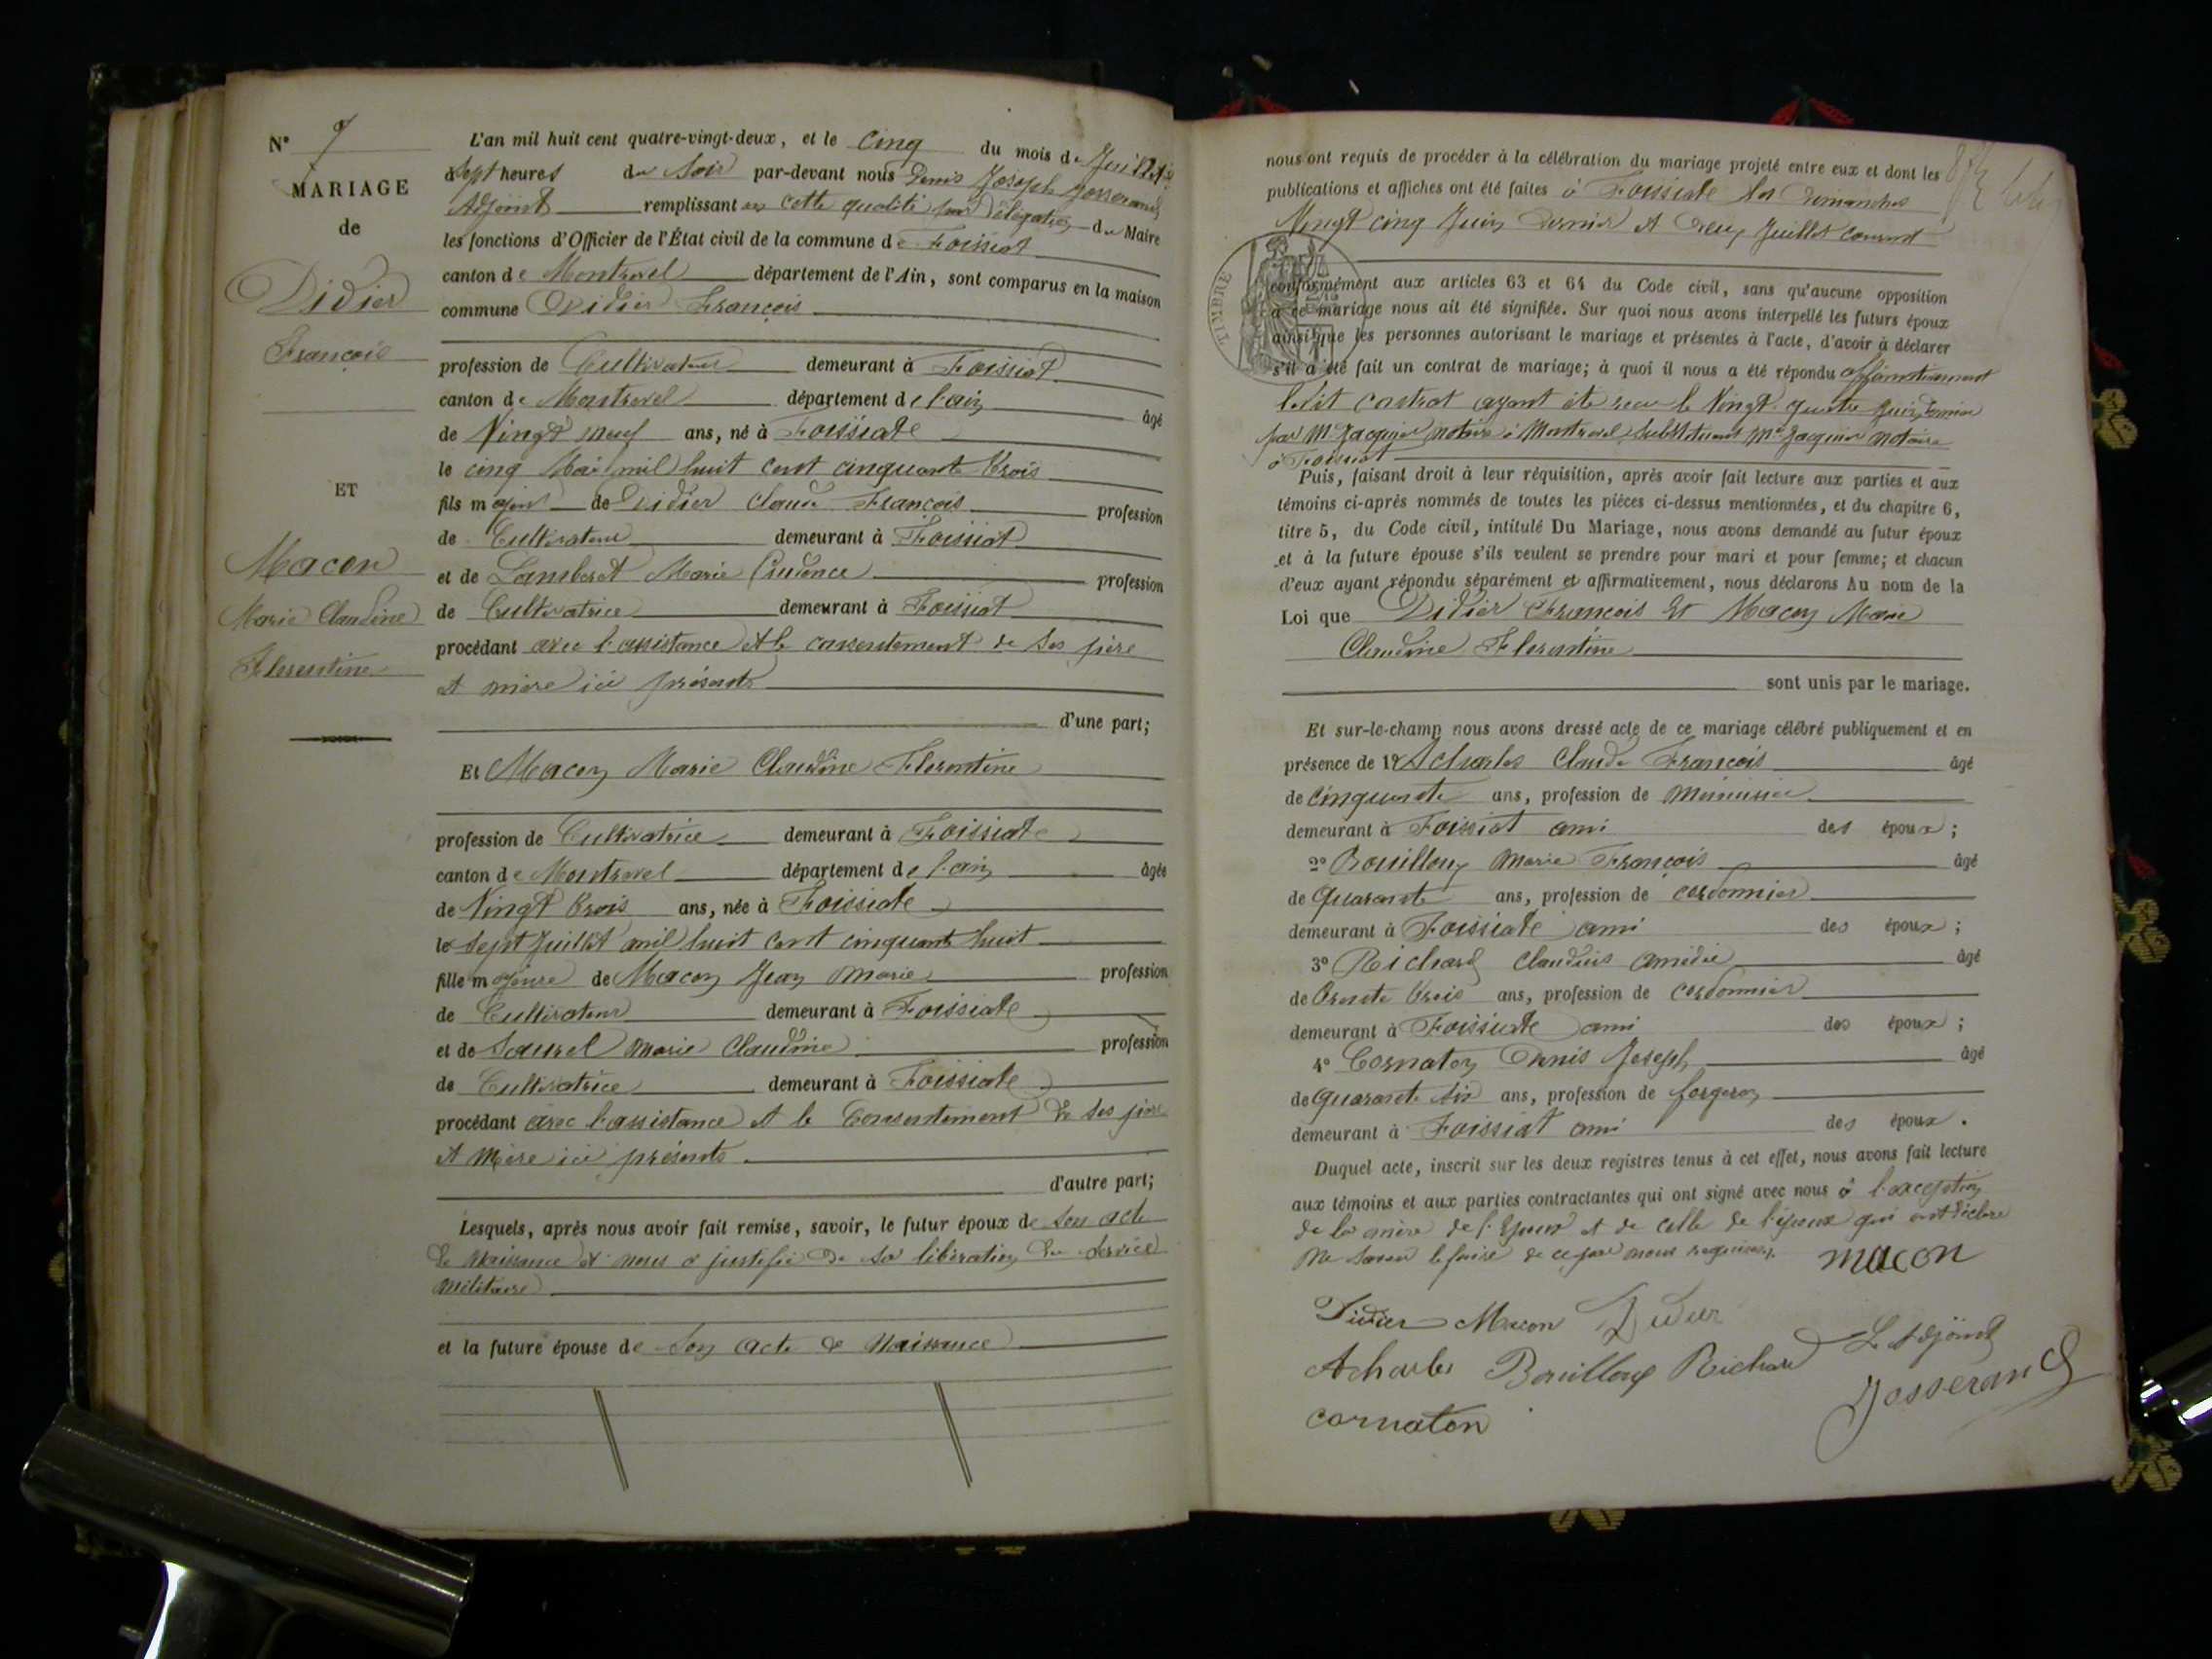 N° 7
MARIAGE
de
Didier
François
ET
Macon
Marie Claudine
Florentine
L'an mil huit cent quatre-vingt-deux, et le cinq du mois de Juillet
à sept heures du soir par-devant nous Denis Joseph Josserand
Adjoint remplissant en cette qualité par délégation du Maire
les fonctions d'Officier de l'État civil de la commune de Foissiat
canton de Montrevel département de l'Ain, sont comparus en la maison
commune Didier François
profession de Cultivateur demeurant à Foissiat
canton de Montrevel département de l'ain âgé
de Vingt neuf ans, né à Foissiat
le cinq Mai mil huit cent cinquante trois
fils majeur de Didier Claude François profession
de Cultivateur demeurant à Foissiat
et de Lamberet Marie Prudence profession
de Cultivatrice demeurant à Foissiat
procédant avec l'assistance et le consentement de ses père
et mère ici présents
d'une part;
Et Macon Marie Claudine Florentine
profession de Cultivatrice demeurant à Foissiat
canton de Montrevel département de l'ain âgée
de Vingt trois ans, née à Foissiat
le sept Juillet mil huit cent cinquante huit
fille majeure de Macon Jean Marie profession
de Cultivateur demeurant à Foissiat
et de Saurel Marie Claudine profession
de Cultivatrice demeurant à Foissiat
procédant avec l'assistance et le Consentement de ses père
et Mère ici présents.
d'autre part;
Lesquels, après nous avoir fait remise, savoir, le futur époux de son acte
de Naissance et nous a justifié de sa libération du service
militaire
et la future épouse de son acte de Naissance
nous ont requis de procéder à la célébration du mariage projeté entre eux et dont les
publications et affiches ont été faites à Foissiat les dimanches
Vingt cinq Juin dernier et deux Juillet courant
TIMBRE
conformément aux articles 63 et 64 du Code civil, sans qu'aucune opposition
à ce mariage nous ait été signifiée. Sur quoi nous avons interpellé les futurs époux
ainsi que les personnes autorisant le mariage et présentes à l'acte, d'avoir à déclarer
s'il a été fait un contrat de mariage; à quoi il nous a été répondu affirmativement
ledit contrat ayant été reçu le Vingt quatre Juin dernier
par Me Jacquier notaire à Montrevel, substituant Me Jacquier notaire
à Foissiat
Puis, faisant droit à leur réquisition, après avoir fait lecture aux parties et aux
témoins ci-après nommés de toutes les pièces ci-dessus mentionnées, et du chapitre 6,
titre 5, du Code civil, intitulé Du Mariage, nous avons demandé au futur époux
et à la future épouse s'ils veulent se prendre pour mari et pour femme; et chacun
d'eux ayant répondu séparément et affirmativement, nous déclarons Au nom de la
Loi que Didier François et Macon Marie
Claudine Florentine
sont unis par le mariage.
Et sur-le-champ nous avons dressé acte de ce mariage célébré publiquement et en
présence de 1° Acharles Claude François âgé
de cinquante ans, profession de Menuisier
demeurant à Foissiat ami des époux;
2° Bouilloux Marie François âgé
de Quarante ans, profession de cordonnier
demeurant à Foissiat ami des époux;
3° Richard Claudius Amédée âgé
de trente trois ans, profession de cordonnier
demeurant à Foissiat ami des époux;
4° Cornaton Denis Joseph âgé
de quarante six ans, profession de forgeron
demeurant à Foissiat ami des époux.
Duquel acte, inscrit sur les deux registres tenus à cet effet, nous avons fait lecture
aux témoins et aux parties contractantes qui ont signé avec nous à l'exception
de la mère de l'époux et de celle de l'épouse qui ont déclaré
ne savoir le faire de ce par nous requises. macon
Didier Macon Didier
Acharles Bouilloux Richard L'adjoint
Josserand
cornaton